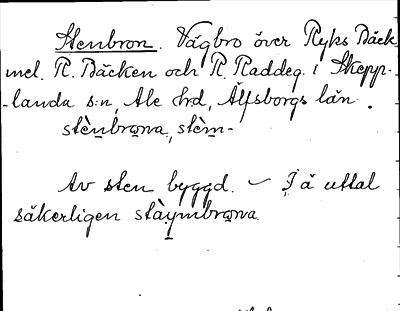 Stenbron. Vägbro över Ryks Bäck
mel. R. Bäcken och R. Raddeg. i Skepp-
-landa s:n, Ale hrd, Älfsborgs län.
stènbrωna, stèm-
Av sten byggd. – I ä uttal
säkerligen stàymbrωna